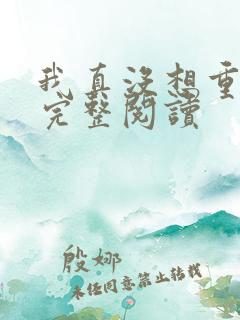 我真没想重
完整閱讀
殷娜
未经同意禁止转载